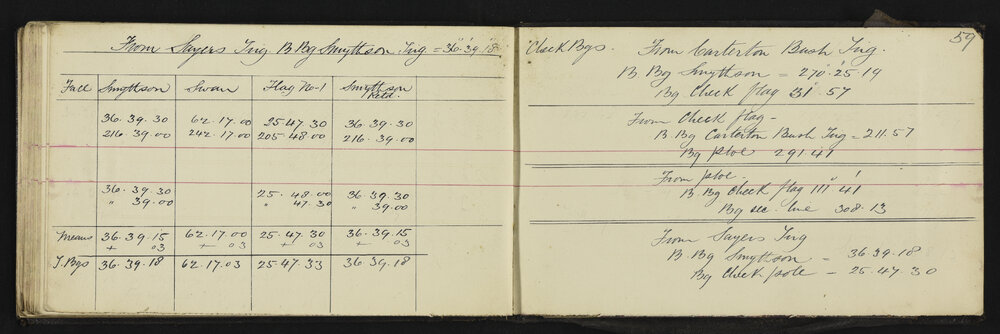 From Sayers Trig B Bg Smythson Trig = 36°.39'.18"
Face Smythson Swan Flag No-1 Smythson Retd.
36.39.30 62.17.00 25.47.30 36.39.30
216.39.00 242.17.00 205.48.00 216.39.00
36.39.30 25.48.00 36.39.30
" 39.00 " 47.30 " 39.00
Means 36.39.15 62.17.00 25.47.30 36.39.15
+ 03 + 03 + 03 + 03
T.Bgs 36.39.18 62.17.03 25.47.33 36.39.18
59
Check Bgs. From Carterton Bush Trig.
B. Bg Smythson = 270°.25'.19
Bg Check flag 31°.57
From Check flag -
B Bg Carterton Bush Trig = 211.57
Bg pole 291.41
From pole -
B Bg Check flag 111° 41'
Bg sec. line 308.13
From Sayers Trig
B. Bg Smythson = 36.39.18
Bg Check pole - 25.47.30